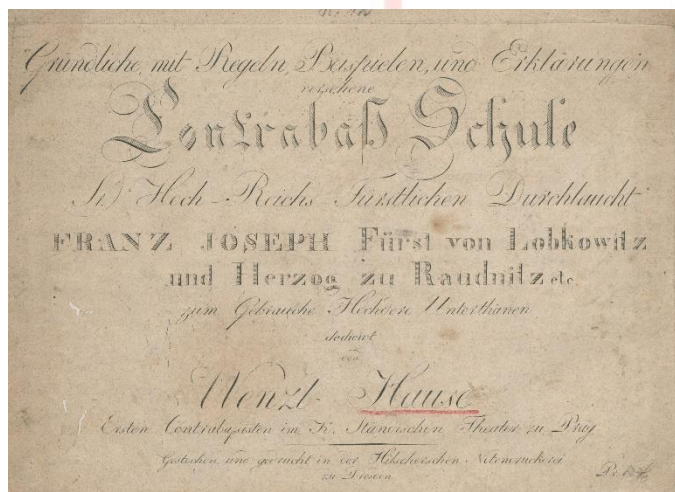 Gründliche, mit Regeln, Beispielen, und Erklärungen
versehene
Contrabaß Schule
Sr. Hoch-Reichs Fürstlichen Durchlaucht
FRANZ JOSEPH Fürst von Lobkowitz
und Herzog zu Raudnitz etc.
zum Gebrauche Hochdero Unterthanen
dedicirt
von
Wenzl Hause
Ersten Contrabasisten im K. Ständischen Theater zu Prag
Gestochen und gedruckt in der Hilscherschen Notendruckerei
zu Dresden